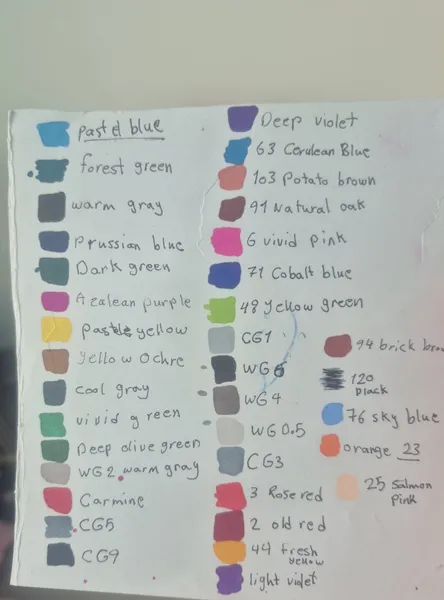 Pastel blue
forest green
warm gray
Prussian blue
Dark green
Azalean purple
Pastel yellow
Yellow Ochre
cool gray
vivid green
Deep olive green
WG2 warm gray
Carmine
CG5
CG9
Deep violet
63 Cerulean Blue
103 Potato brown
91 Natural oak
6 vivid pink
71 Cobalt blue
49 Yellow green
CG1
WG6
WG4
WG0.5
CG3
3 Rose red
2 old red
44 Fresh
yellow
light violet
94 brick brow
120
black
76 sky blue
orange 23
25 Salmon
Pink